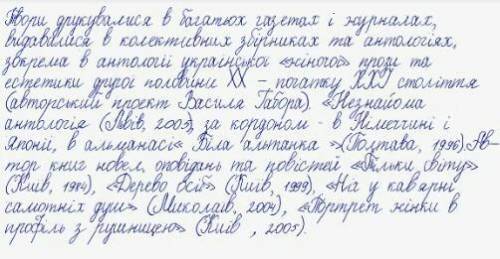 Твори друкувалися в багатьох газетах і журналах,
видавалися в колективних збірниках та антологіях,
зокрема в антології української «жіночої» прози та
естетики другої половини ХХ – початку ХХІ століття
(авторський проект Василя Габора). «Незнайома
антологія (Львів, 2005), за кордоном - в Німеччині і
Японії, в альманасі «Біла альтанка »(Полтава, 1996).Ав-
тор книг новел, оповідань та повістей «Тільки світу»
(Київ, 1984), «Дерево осії» (Київ, 1999), «На у кав'ярні
самотніх душ» (Миколаїв, 2004), «Портрет жінки в
профіль з рушницею» (Київ , 2005).